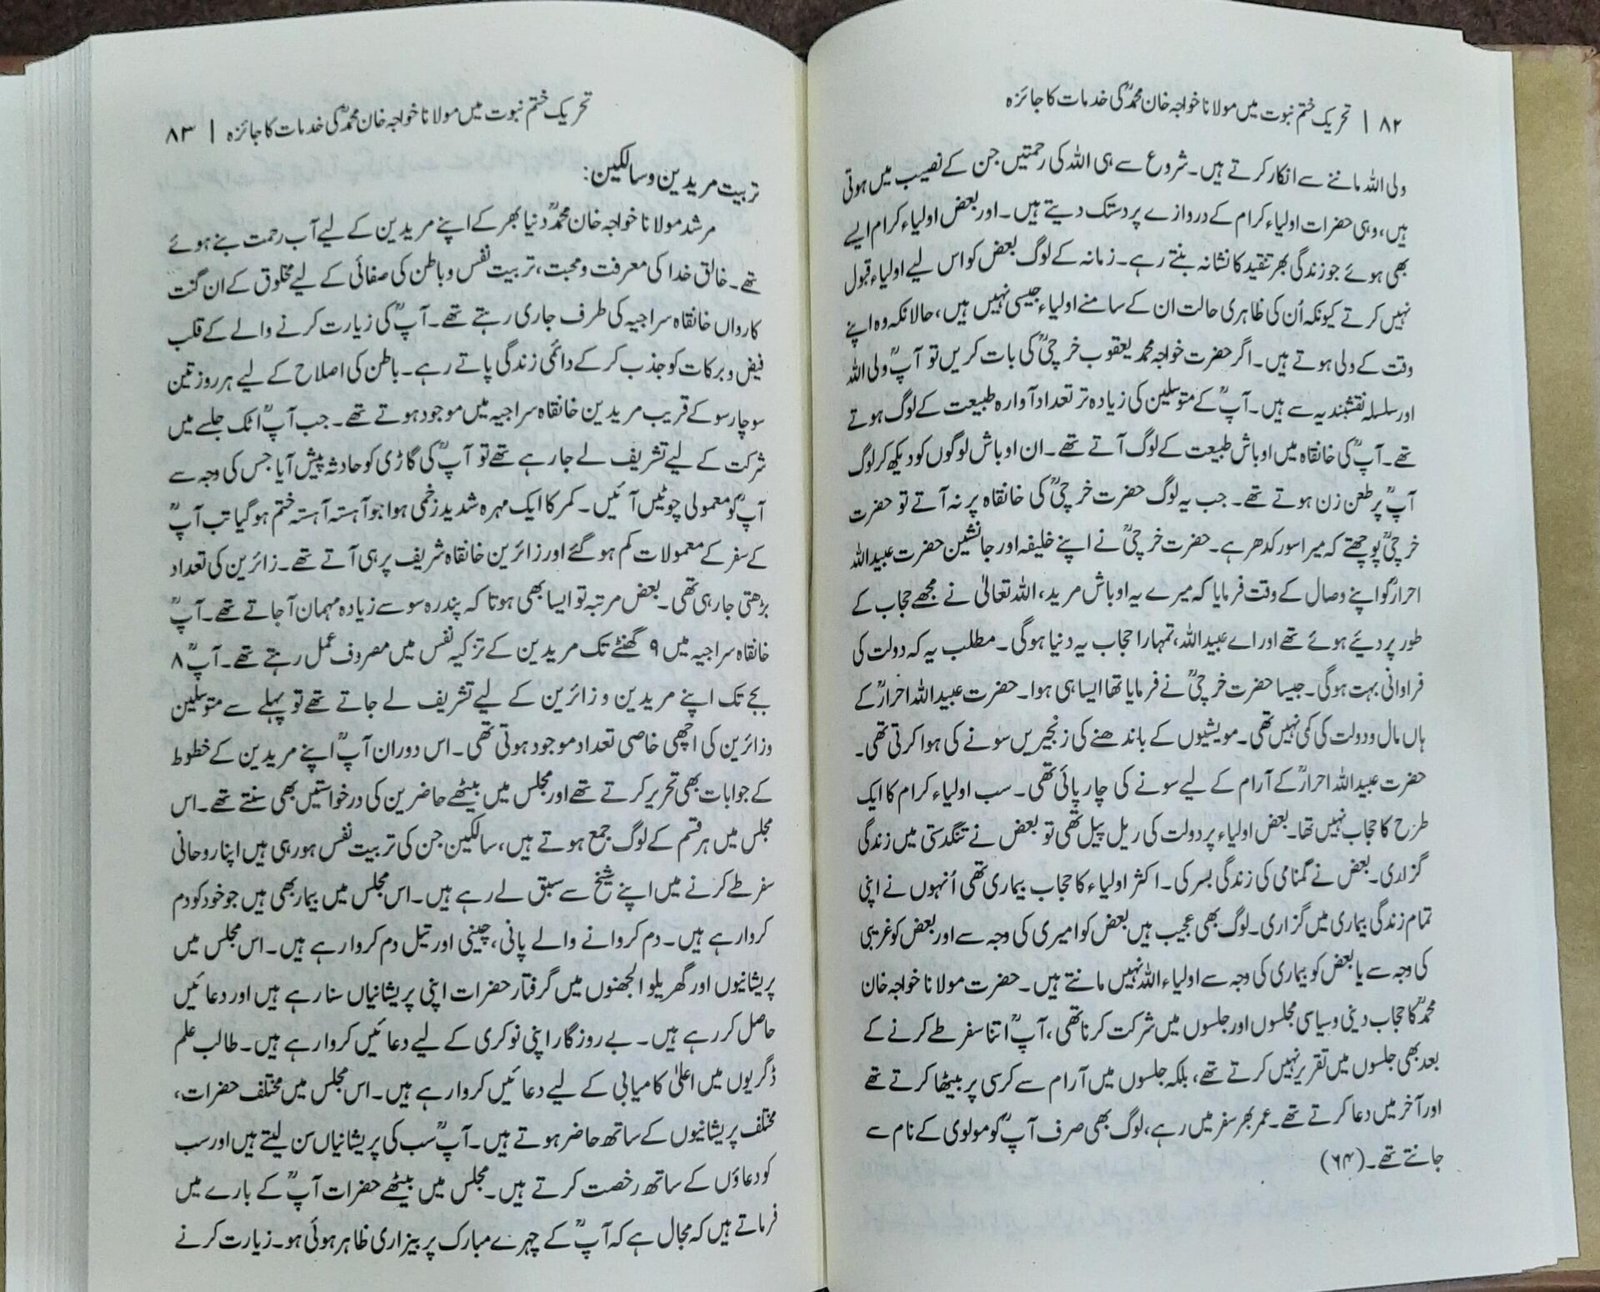 ۸۲ | تحریک ختم نبوت میں مولانا خواجہ خان محمدؒ کی خدمات کا جائزہ
ولی اللہ ماننے سے انکار کرتے ہیں۔ شروع سے ہی اللہ کی رحمتیں جن کے نصیب میں ہوتی
ہیں، وہی حضرات اولیاء کرام کے دروازے پر دستک دیتے ہیں۔ اور بعض اولیاء کرام ایسے
بھی ہوئے جو زندگی بھر تنقید کا نشانہ بنتے رہے۔ زمانہ کے لوگ بعض کو اس لیے اولیاء قبول
نہیں کرتے کیونکہ اُن کی ظاہری حالت ان کے سامنے اولیاء جیسی نہیں ہیں، حالانکہ وہ اپنے
وقت کے ولی ہوتے ہیں۔ اگر حضرت خواجہ محمد یعقوب خرچیؒ کی بات کریں تو آپؒ ولی اللہ
اور سلسلہ نقشبندیہ سے ہیں۔ آپؒ کے متوسلین کی زیادہ تر تعداد آوارہ طبیعت کے لوگ ہوتے
تھے۔ آپؒ کی خانقاہ میں اوباش طبیعت کے لوگ آتے تھے۔ ان اوباش لوگوں کو دیکھ کر لوگ
آپؒ پر طعن زن ہوتے تھے۔ جب یہ لوگ حضرت خرچیؒ کی خانقاہ پر نہ آتے تو حضرت
خرچیؒ پوچھتے کہ میرا سور کدھر ہے۔ حضرت خرچیؒ نے اپنے خلیفہ اور جانشین حضرت عبید اللہ
احرارؒ کو اپنے وصال کے وقت فرمایا کہ میرے یہ اوباش مرید، اللہ تعالیٰ نے مجھے حجاب کے
طور پر دیئے ہوئے تھے اور اے عبید اللہ، تمہارا حجاب یہ دنیا ہوگی۔ مطلب یہ کہ دولت کی
فراوانی بہت ہوگی۔ جیسا حضرت خرچیؒ نے فرمایا تھا ایسا ہی ہوا۔ حضرت عبید اللہ احرارؒ کے
ہاں مال و دولت کی کمی نہیں تھی۔ مویشیوں کے باندھنے کی زنجیریں سونے کی ہوا کرتی تھی۔
حضرت عبید اللہ احرارؒ کے آرام کے لیے سونے کی چارپائی تھی۔ سب اولیاء کرام کا ایک
طرح کا حجاب نہیں تھا۔ بعض اولیاء پر دولت کی ریل پیل تھی تو بعض نے تنگدستی میں زندگی
گزاری۔ بعض نے گمنامی کی زندگی بسر کی۔ اکثر اولیاء کا حجاب بیماری تھی اُنہوں نے اپنی
تمام زندگی بیماری میں گزاری۔ لوگ بھی عجیب ہیں بعض کو امیری کی وجہ سے اور بعض کو غریبی
کی وجہ سے یا بعض کو بیماری کی وجہ سے اولیاء اللہ نہیں مانتے ہیں۔ حضرت مولانا خواجہ خان
محمدؒ کا حجاب دینی و سیاسی مجلسوں اور جلسوں میں شرکت کرنا تھی، آپؒ اتنا سفر طے کرنے کے
بعد بھی جلسوں میں تقریر نہیں کرتے تھے، بلکہ جلسوں میں آرام سے کرسی پر بیٹھا کرتے تھے
اور آخر میں دعا کرتے تھے۔ عمر بھر سفر میں رہے، لوگ بھی صرف آپؒ کو مولوی کے نام سے
جانتے تھے۔(۶۴)
تحریک ختم نبوت میں مولانا خواجہ خان محمدؒ کی خدمات کا جائزہ | ۸۳
تربیت مریدین و سالکین:
مرشد مولانا خواجہ خان محمدؒ دنیا بھر کے اپنے مریدین کے لیے آب رحمت بنے ہوئے
تھے۔ خالق خدا کی معرفت و محبت، تربیت نفس و باطن کی صفائی کے لیے مخلوق کے ان گنت
کارواں خانقاہ سراجیہ کی طرف جاری رہتے تھے۔ آپؒ کی زیارت کرنے والے کے قلب
فیض و برکات کو جذب کر کے دائمی زندگی پاتے رہے۔ باطن کی اصلاح کے لیے ہر روز تین
سو چار سو کے قریب مریدین خانقاہ سراجیہ میں موجود ہوتے تھے۔ جب آپؒ اٹک جلسے میں
شرکت کے لیے تشریف لے جارہے تھے تو آپؒ کی گاڑی کو حادثہ پیش آیا جس کی وجہ سے
آپؒ کو معمولی چوٹیں آئیں۔ کمر کا ایک مہرہ شدید زخمی ہوا جو آہستہ آہستہ ختم ہوگیا تب آپؒ
کے سفر کے معمولات کم ہوگئے اور زائرین خانقاہ شریف پر ہی آتے تھے۔ زائرین کی تعداد
بڑھتی جارہی تھی۔ بعض مرتبہ تو ایسا بھی ہوتا کہ پندرہ سو سے زیادہ مہمان آجاتے تھے۔ آپؒ
خانقاہ سراجیہ میں ۹ گھنٹے تک مریدین کے تزکیہ نفس میں مصروف عمل رہتے تھے۔ آپؒ ۸
بجے تک اپنے مریدین و زائرین کے لیے تشریف لے جاتے تھے تو پہلے سے متوسلین
وزائرین کی اچھی خاصی تعداد موجود ہوتی تھی۔ اس دوران آپؒ اپنے مریدین کے خطوط
کے جوابات بھی تحریر کرتے تھے اور مجلس میں بیٹھے حاضرین کی درخواستیں بھی سنتے تھے۔ اس
مجلس میں ہر قسم کے لوگ جمع ہوتے ہیں، سالکین جن کی تربیت نفس ہورہی ہیں اپنا روحانی
سفر طے کرنے میں اپنے شیخ سے سبق لے رہے ہیں۔ اس مجلس میں بیمار بھی ہیں جو خود کو دم
کروارہے ہیں۔ دم کروانے والے پانی، چینی اور تیل دم کروارہے ہیں۔ اس مجلس میں
پریشانیوں اور گھریلو الجھنوں میں گرفتار حضرات اپنی پریشانیاں سنارہے ہیں اور دعائیں
حاصل کررہے ہیں۔ بے روزگار اپنی نوکری کے لیے دعائیں کروارہے ہیں۔ طالب علم
ڈگریوں میں اعلیٰ کامیابی کے لیے دعائیں کروارہے ہیں۔ اس مجلس میں مختلف حضرات،
مختلف پریشانیوں کے ساتھ حاضر ہوتے ہیں۔ آپؒ سب کی پریشانیاں سن لیتے ہیں اور سب
کو دعاؤں کے ساتھ رخصت کرتے ہیں۔ مجلس میں بیٹھے حضرات آپؒ کے بارے میں
فرماتے ہیں کہ مجال ہے کہ آپؒ کے چہرے مبارک پر بیزاری ظاہر ہوئی ہو۔ زیارت کرنے